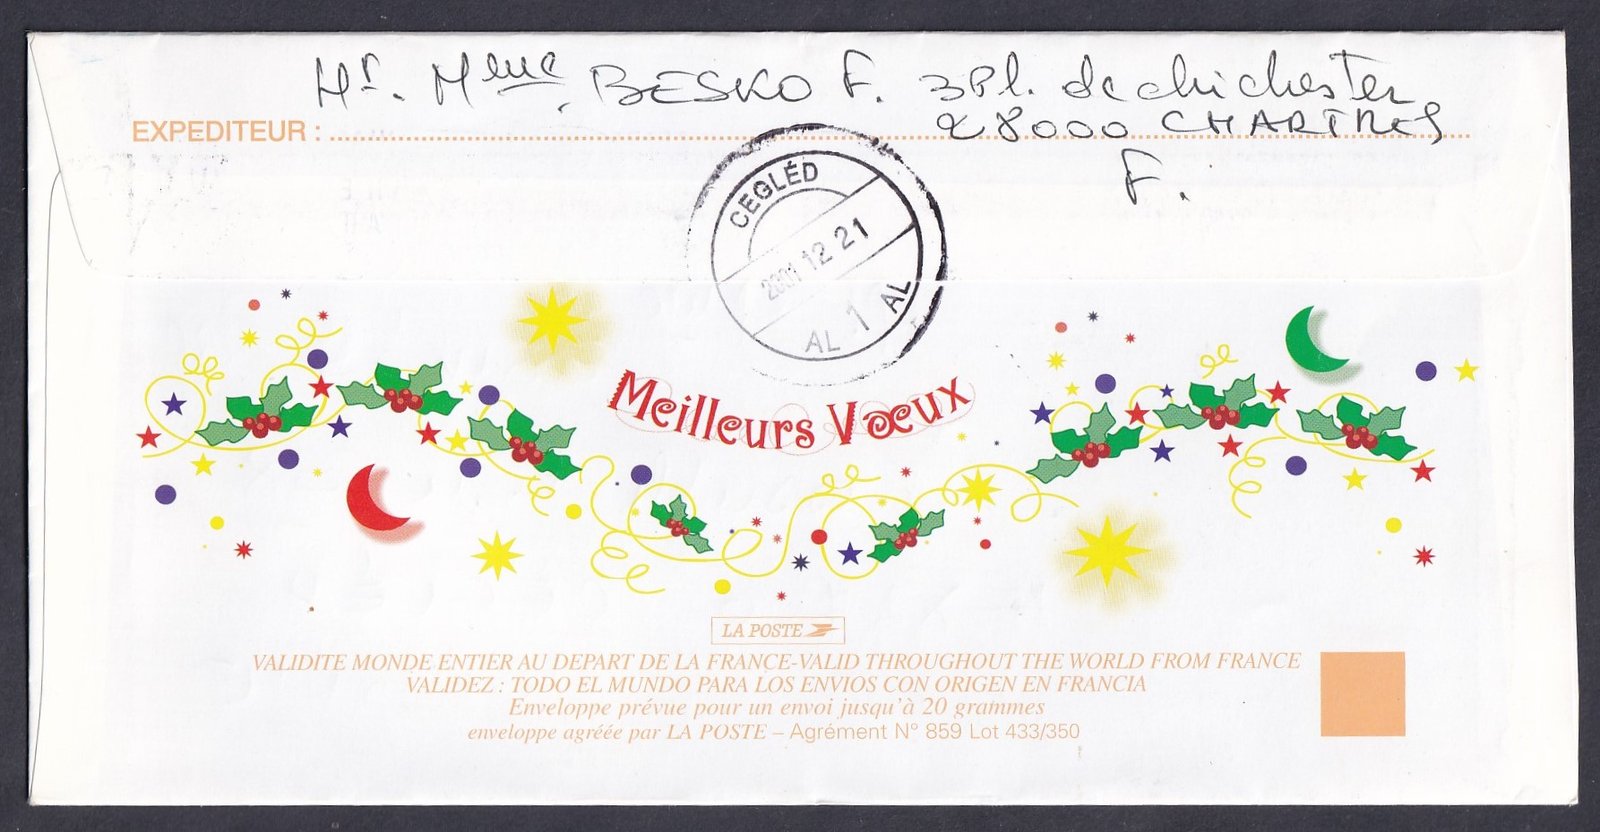 Mr. Mme BESKO F. 3 Pl. de chichester
EXPEDITEUR :
28000 CHARTRES
F.
CEGLÉD
2001 12 21
AL 1 AL
Meilleurs Vœux
LA POSTE
VALIDITE MONDE ENTIER AU DEPART DE LA FRANCE-VALID THROUGHOUT THE WORLD FROM FRANCE
VALIDEZ : TODO EL MUNDO PARA LOS ENVIOS CON ORIGEN EN FRANCIA
Enveloppe prévue pour un envoi jusqu'à 20 grammes
enveloppe agréée par LA POSTE – Agrément N° 859 Lot 433/350